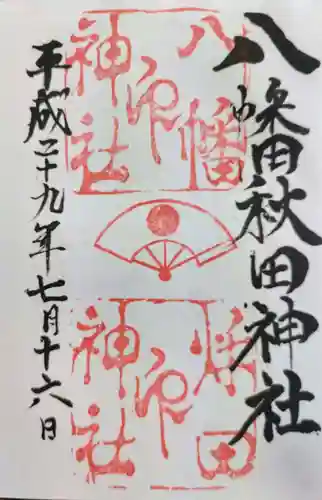 八幡秋田神社
平成二十九年七月十六日
八幡
神社
印
秋田
神社
印